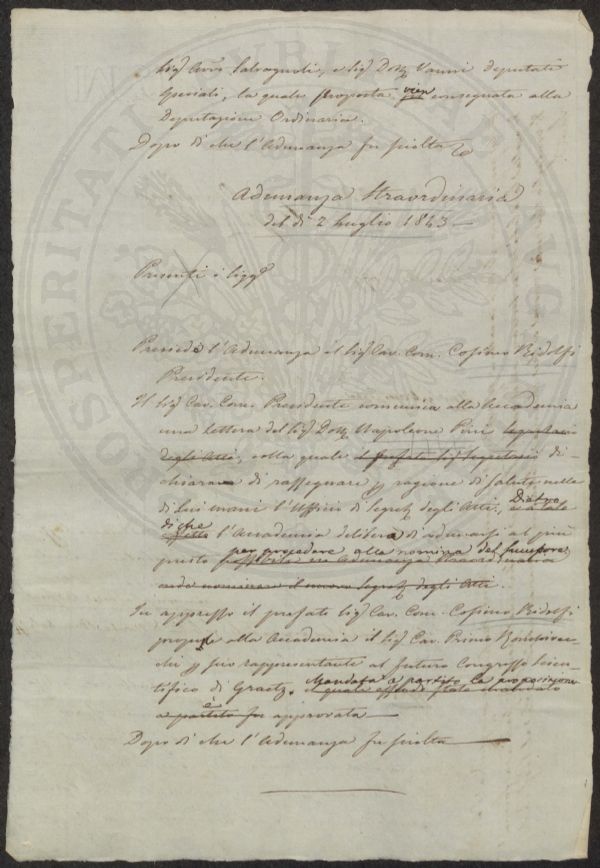 Sigr Avvo Salvagnoli, e Sigr Dottr Vanni Deputati
speciali, la quale proposta vien consegnata alla
Deputazione Ordinaria.
Dopo di che l'Adunanza fu sciolta
Adunanza Straordinaria
del dì 2 Luglio 1843
Presenti i Sigg
Presiede l'Adunanza il Sigr Cav. Com. Cosimo Ridolfi
Presidente.
Il Sigr Cav. Com. Presidente comunica alla Accademia
una lettera del Sigr Dottr Napoleone Pini Segretario
degli Atti, colla quale il prefato Sigr Segretario di-
chiara di rassegnare per ragione di salute nelle
di Lui mani l'Uffizio di Segreto degli Atti. Dietro
di che l'Accademia delibera di adunarsi al più
presto per procedere alla nomina del successore
Adunanza Straordinaria
il nuovo Segreto degli Atti.
In appresso il prefato Sigr Cav. Com. Cosimo Ridolfi
propone alla Accademia il Sigr Cav. Primo
per suo rappresentante al futuro Congresso Scien-
tifico di Graetz. Mandata a partito la proposizione
il quale essendo stato
a partito fu è approvata
Dopo di che l'Adunanza fu sciolta
PROSPERITATI PUBLICAE AUG